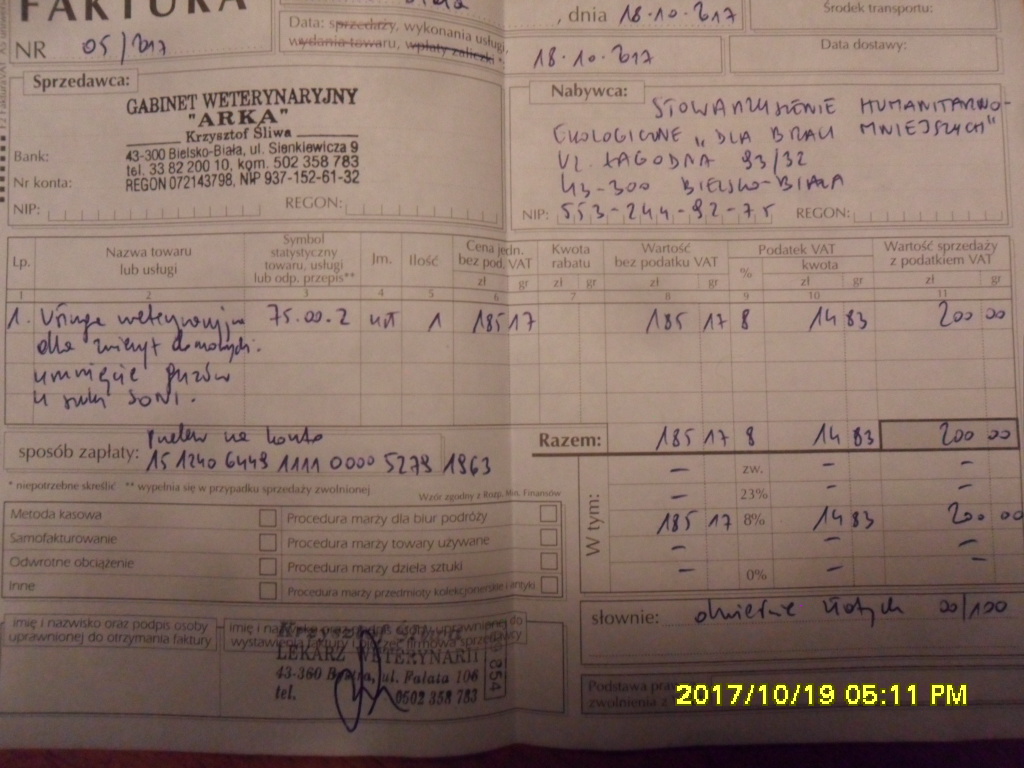 FAKTURA
, dnia 18.10.2017
Środek transportu:
NR 05/2017
Data: sprzedaży, wykonania usługi,
wydania towaru, wpłaty zaliczki *
18.10.2017
Data dostawy:
Sprzedawca:
GABINET WETERYNARYJNY
"ARKA"
Krzysztof Śliwa
43-300 Bielsko-Biała, ul. Sienkiewicza 9
tel. 33 82 200 10, kom. 502 358 783
REGON 072143798, NIP 937-152-61-32
Bank:
Nr konta:
NIP: REGON:
Nabywca: STOWARZYSZENIE HUMANITARNO-
EKOLOGICZNE "DLA BRACI MNIEJSZYCH"
UL. ŁAGODNA 93/32
43-300 BIELSKO-BIAŁA
NIP: 553-244-92-75 REGON:
Lp. Nazwa towaru lub usługi Symbol statystyczny towaru, usługi lub odp. przepis** Jm. Ilość Cena jedn. bez pod. VAT Kwota rabatu Wartość bez podatku VAT Podatek VAT Wartość sprzedaży z podatkiem VAT
% kwota
zł gr zł gr zł gr zł gr zł gr
1 2 3 4 5 6 7 8 9 10 11
1. Usługa weterynaryjna 75.00.2 1 185 17 185 17 8 14 83 200 00
dla zwierząt domowych.
usunięcie guzów
u suki SONI.
sposób zapłaty: przelew na konto
15 1240 6449 1111 0000 5279 1963
Razem: 185 17 8 14 83 200 00
W tym:
– zw. – –
– 23% – –
185 17 8% 14 83 200 00
– – –
– 0% – –
* niepotrzebne skreślić ** wypełnia się w przypadku sprzedaży zwolnionej
Wzór zgodny z Rozp. Min. Finansów
Metoda kasowa Procedura marży dla biur podróży
Samofakturowanie Procedura marży towary używane
Odwrotne obciążenie Procedura marży dzieła sztuki
Inne Procedura marży przedmioty kolekcjonerskie i antyki
słownie: dwieście złotych 00/100
imię i nazwisko oraz podpis osoby
uprawnionej do otrzymania faktury
imię i nazwisko oraz podpis osoby uprawnionej do
wystawienia faktury
Krzysztof Śliwa
LEKARZ WETERYNARII
ul. Fałata 106
tel. 0502 358 783
Podstawa
zwolnienia z
2017/10/19 05:11 PM